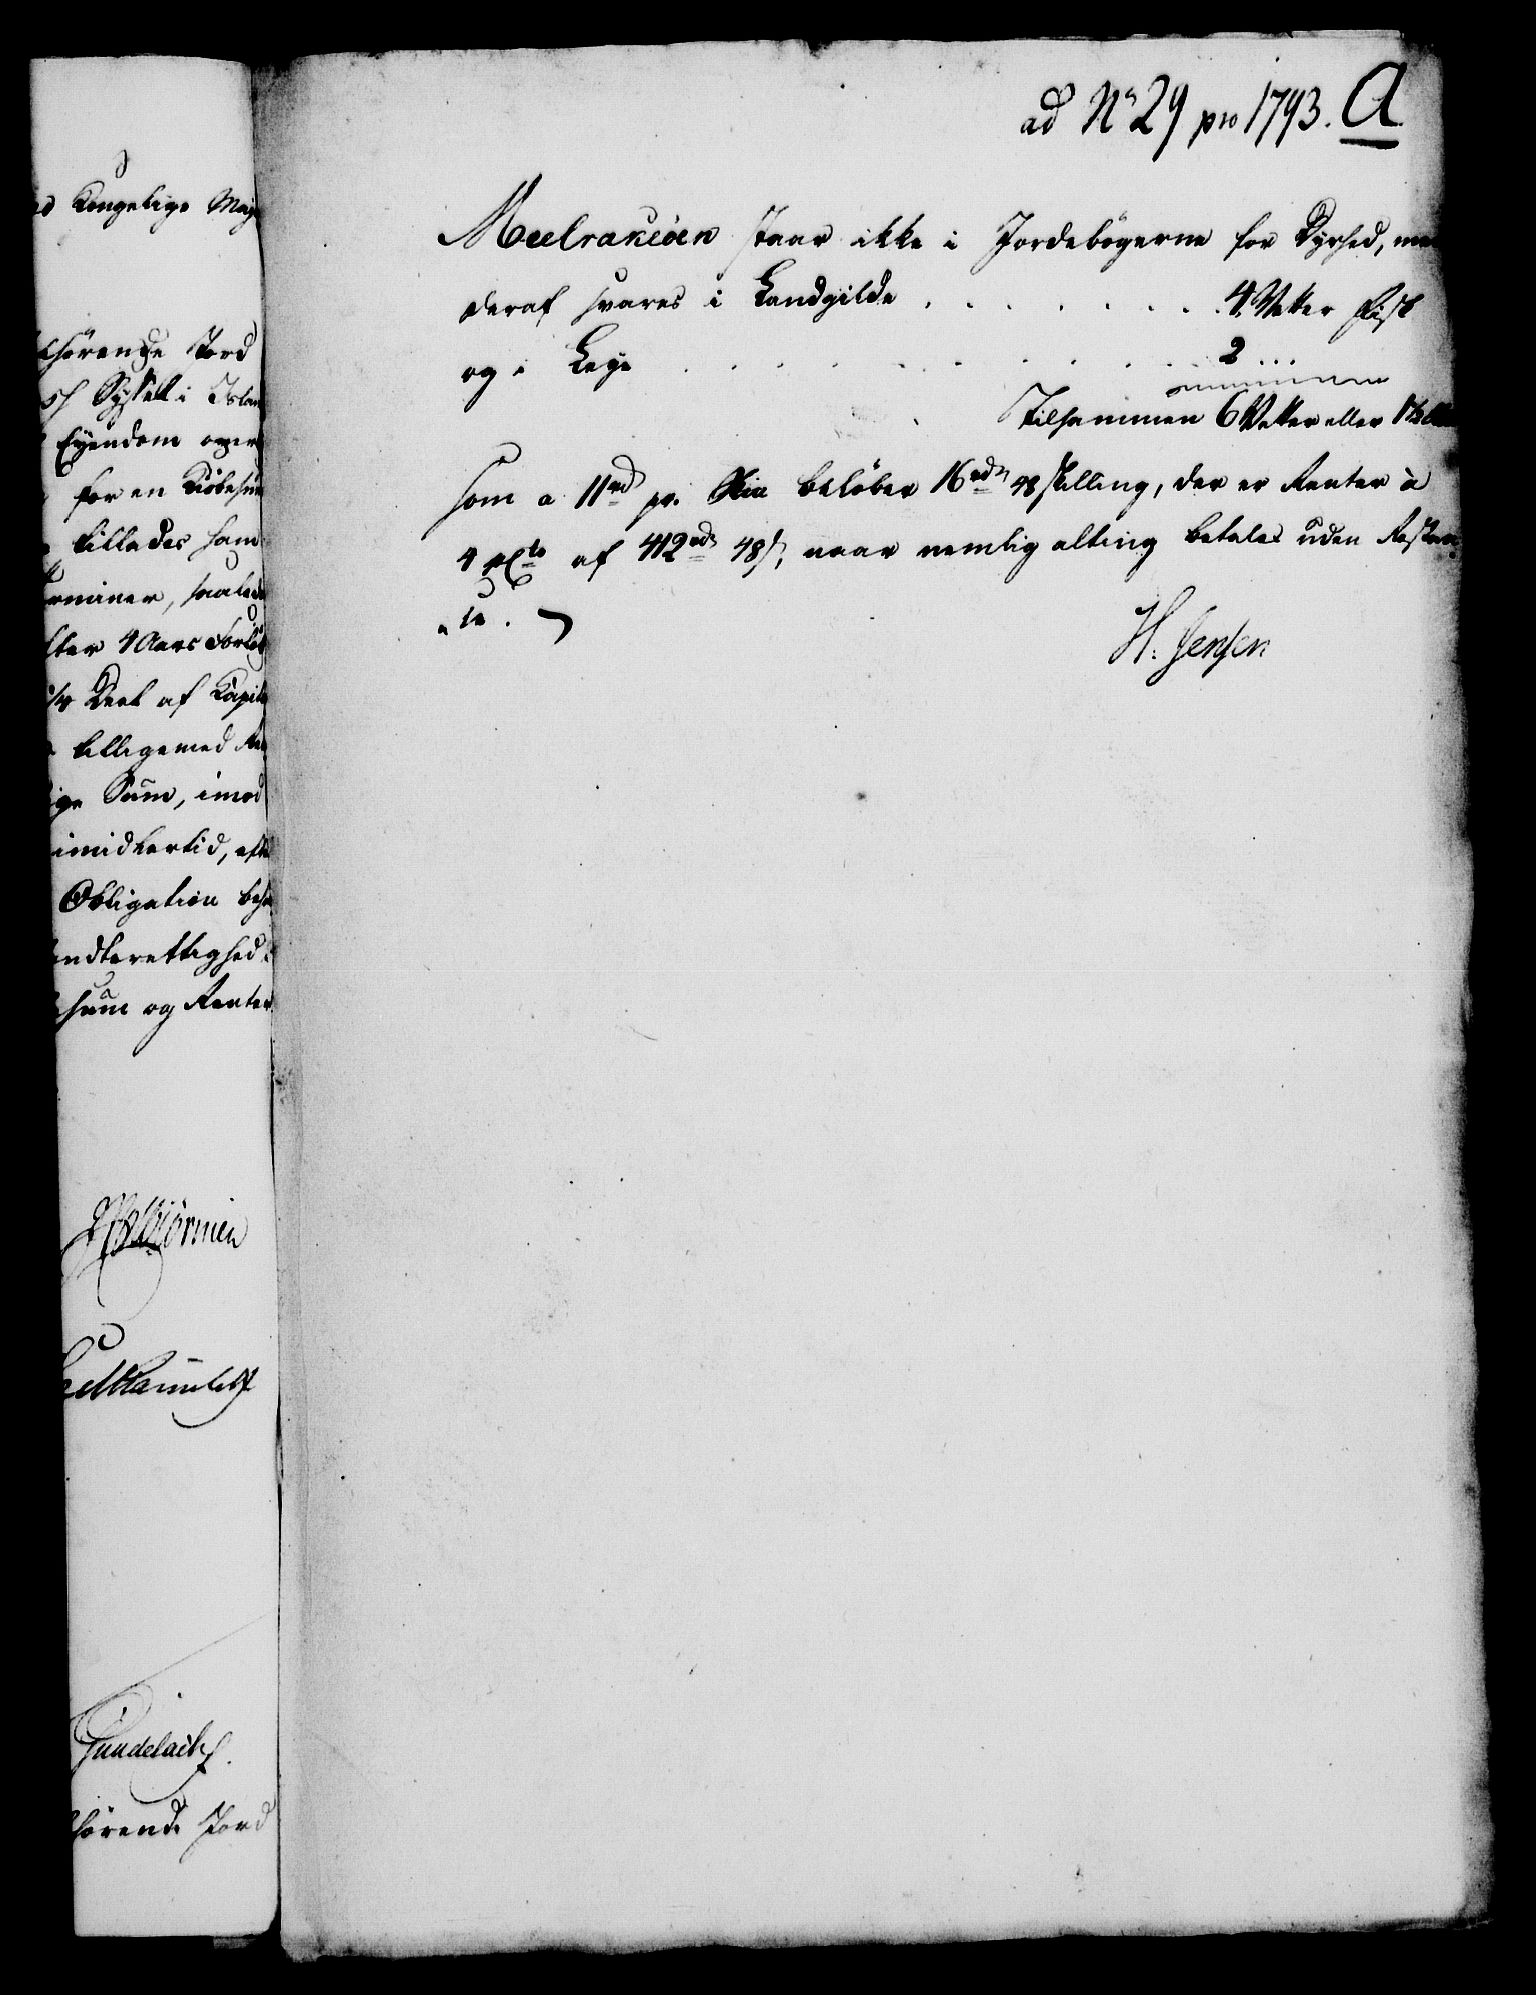 ad No 29 pro 1793. A
Meelrakeöen staar ikke i Jordebögerne for Dyrhed, men
deraf svares i Landgilde . . . . . . . 4 Vetter Fisk
og i Leye . . . . . . . . 2 ...
Tilsammen 6 Vetter eller 1½
som a 11 rd pr. belöber 16 rd 48 skilling, der er Renter à
4 pCto af 412 rd 48 s, naar nemlig alting betales uden Restan-
tie.
H. Jensen
Kongelige Maj
hörende Jord
Syssel i Islan
Eyendom over
for en Kiöbesum
tillades ham
rminer, saaled
fter 4 Aars Forlöb
1/4 Deel af Kapita
tilligemed Re
Sum, imod
imidlertid, eft
Obligation beh
ndterettighed
sum og Renter
hörende Jord